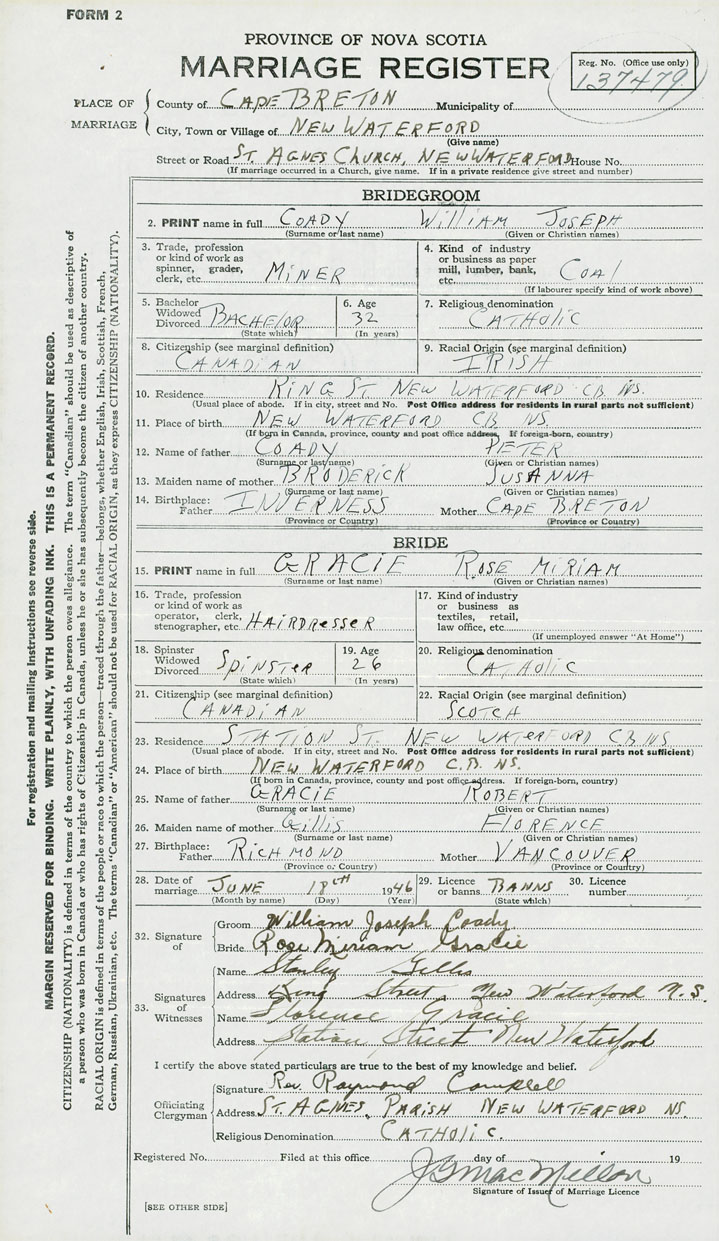 FORM 2
PROVINCE OF NOVA SCOTIA
MARRIAGE REGISTER
Reg. No. (Office use only)
137479
PLACE OF MARRIAGE
County of CAPE BRETON Municipality of
City, Town or Village of NEW WATERFORD
(Give name)
Street or Road ST. AGNES CHURCH, NEW WATERFORD House No.
(If marriage occurred in a Church, give name. If in a private residence give street and number)
BRIDEGROOM
2. PRINT name in full COADY WILLIAM JOSEPH
(Surname or last name) (Given or Christian names)
3. Trade, profession or kind of work as spinner, grader, clerk, etc. MINER
4. Kind of industry or business as paper mill, lumber, bank, etc. COAL
(If labourer specify kind of work above)
5. Bachelor Widowed Divorced BACHELOR
(State which)
6. Age 32
(In years)
7. Religious denomination
CATHOLIC
8. Citizenship (see marginal definition)
CANADIAN
9. Racial Origin (see marginal definition)
IRISH
10. Residence KING ST. NEW WATERFORD CB NS.
(Usual place of abode. If in city, street and No. Post Office address for residents in rural parts not sufficient)
11. Place of birth NEW WATERFORD CB NS.
(If born in Canada, province, county and post office address. If foreign-born, country)
12. Name of father COADY PETER
(Surname or last name) (Given or Christian names)
13. Maiden name of mother BRODERICK SUSANNA
(Surname or last name) (Given or Christian names)
14. Birthplace: Father INVERNESS Mother CAPE BRETON
(Province or Country) (Province or Country)
BRIDE
15. PRINT name in full GRACIE ROSE MIRIAM
(Surname or last name) (Given or Christian names)
16. Trade, profession or kind of work as operator, clerk, stenographer, etc. HAIRDRESSER
17. Kind of industry or business as textiles, retail, law office, etc.
(If unemployed answer "At Home")
18. Spinster Widowed Divorced SPINSTER
(State which)
19. Age 26
(In years)
20. Religious denomination
CATHOLIC
21. Citizenship (see marginal definition)
CANADIAN
22. Racial Origin (see marginal definition)
SCOTCH
23. Residence STATION ST. NEW WATERFORD CB NS
(Usual place of abode. If in city, street and No. Post Office address for residents in rural parts not sufficient)
24. Place of birth NEW WATERFORD C.B. NS.
(If born in Canada, province, county and post office address. If foreign-born, country)
25. Name of father GRACIE ROBERT
(Surname or last name) (Given or Christian names)
26. Maiden name of mother GILLIS FLORENCE
(Surname or last name) (Given or Christian names)
27. Birthplace: Father RICHMOND Mother VANCOUVER
(Province or Country) (Province or Country)
28. Date of marriage JUNE 18TH 1946
(Month by name) (Day) (Year)
29. Licence or banns BANNS
(State which)
30. Licence number
32. Signature of
Groom William Joseph Coady
Bride Rose Miriam Gracie
33. Signatures of Witnesses
Name Stanley Gillis
Address King Street, New Waterford N.S.
Name Florence Gracie
Address Station Street New Waterford
I certify the above stated particulars are true to the best of my knowledge and belief.
Officiating Clergyman
Signature Rev. Raymond Campbell
Address ST. AGNES PARISH NEW WATERFORD NS.
Religious Denomination CATHOLIC.
Registered No. Filed at this office day of 19
J G MacMillan
Signature of Issuer of Marriage Licence
[SEE OTHER SIDE]
For registration and mailing instructions see reverse side.
MARGIN RESERVED FOR BINDING. WRITE PLAINLY, WITH UNFADING INK. THIS IS A PERMANENT RECORD.
CITIZENSHIP (NATIONALITY) is defined in terms of the country to which the person owes allegiance. The term "Canadian" should be used as descriptive of
a person who was born in Canada or who has rights of Citizenship in Canada, unless he or she has subsequently become the citizen of another country.
RACIAL ORIGIN is defined in terms of the people or race to which the person—traced through the father—belongs, whether English, Irish, Scottish, French,
German, Russian, Ukrainian, etc. The terms "Canadian" or "American" should not be used for RACIAL ORIGIN, as they express CITIZENSHIP (NATIONALITY).